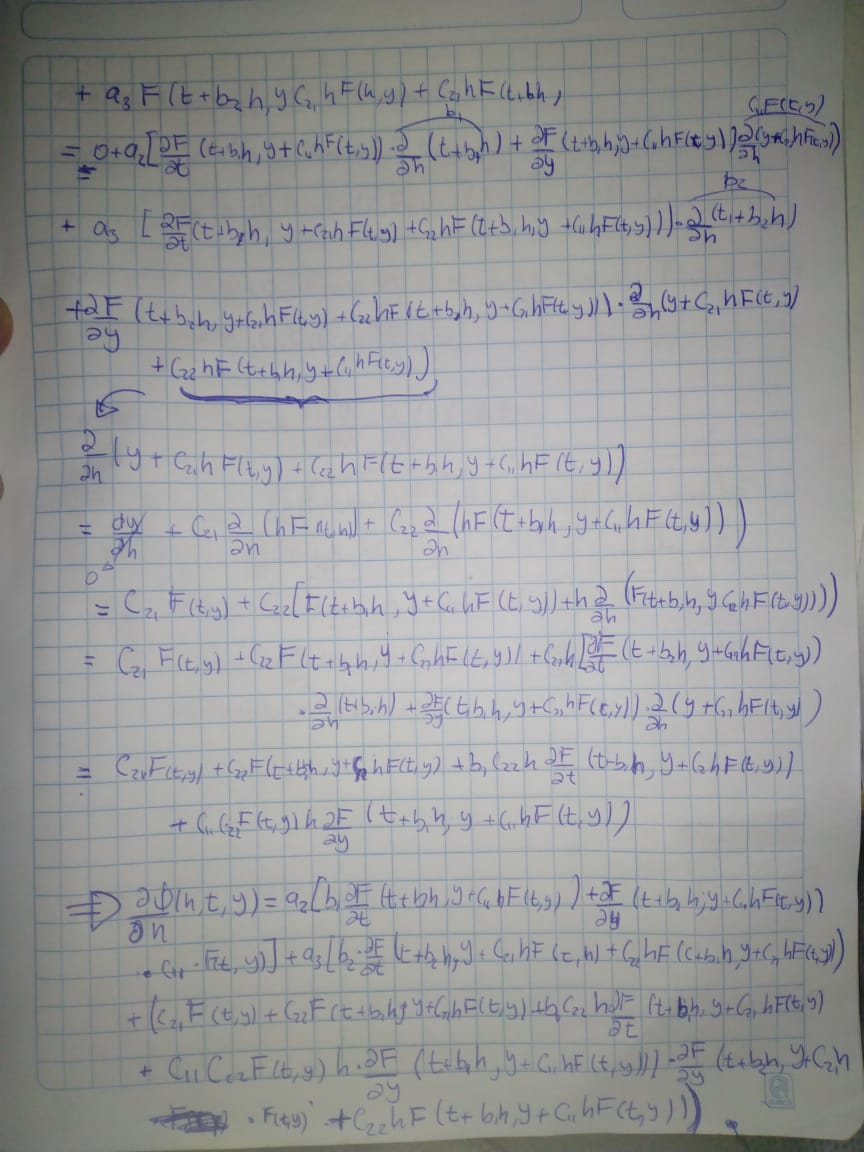 + a₃ F(t+b₂h, y C₂₁hF(h,y) + C₂₁hF(t+bh,
b₁
C₁₁F(t,y)
= 0+a₂[∂F/∂t (t+b₁h, y+C₁₁hF(t,y)) · ∂/∂h (t+b₁h) + ∂F/∂y (t+b₁h, y+C₁₁hF(t,y)) ∂/∂h (y+C₁₁hF(t,y))
b₂
+ a₃ [∂F/∂t (t+b₂h, y+C₂₁hF(t,y) + C₂₂hF(t+b₁h, y+C₁₁hF(t,y))) · ∂/∂h (t₁+b₂h)
+ ∂F/∂y (t+b₂h, y+C₂₁hF(t,y) + C₂₂hF(t+b₁h, y+C₁₁hF(t,y))) · ∂/∂h (y+C₂₁hF(t,y)
+ C₂₂hF(t+b₁h, y+C₁₁hF(t,y))
∂/∂h (y + C₂₁hF(t,y) + C₂₂hF(t+b₁h, y+C₁₁hF(t,y)))
= ∂y/∂h + C₂₁ ∂/∂h (hF + C₂₂ ∂/∂h (hF(t+b₁h, y+C₁₁hF(t,y)))
0
= C₂₁F(t,y) + C₂₂[F(t+b₁h, y+C₁₁hF(t,y)) + h ∂/∂h (F(t+b₁h, y hF(t,y))))
= C₂₁F(t,y) + C₂₂F(t+b₁h, y+C₁₁hF(t,y)) + C₂₂h[∂F/∂t (t+b₁h, y+C₁₁hF(t,y))
· ∂/∂h (t+b₁h) + ∂F/∂y (t+b₁h, y+C₁₁hF(t,y)) · ∂/∂h (y+C₁₁hF(t,y))
= C₂₁F(t,y) + C₂₂F(t+b₁h, y+C₁₁hF(t,y) + b₁C₂₂h ∂F/∂t (t+b₁h, y+C₁₁hF(t,y))
+ C₁₁C₂₂F(t,y)h ∂F/∂y (t+b₁h, y+C₁₁hF(t,y))
⇒ ∂Φ(h,t,y)/∂h = a₂[b₁ ∂F/∂t (t+b₁h, y+C₁₁hF(t,y)) + ∂F/∂y (t+b₁h, y+C₁₁hF(t,y))
· C₁₁ · F(t,y)] + a₃[b₂ · ∂F/∂t (t+b₂h, y+C₂₁hF(t,h) + C₂₂hF(t+b₁h, y+C₁₁hF(t,y))
+ (C₂₁F(t,y) + C₂₂F(t+b₁h, y+C₁₁hF(t,y) + b₁C₂₂h ∂F/∂t (t+b₁h, y+C₁₁hF(t,y)
+ C₁₁C₂₂F(t,y)h · ∂F/∂y (t+b₁h, y+C₁₁hF(t,y))) · ∂F/∂y (t+b₂h, y+C₂₁h
· F(t,y) + C₂₂hF(t+b₁h, y+C₁₁hF(t,y))) .